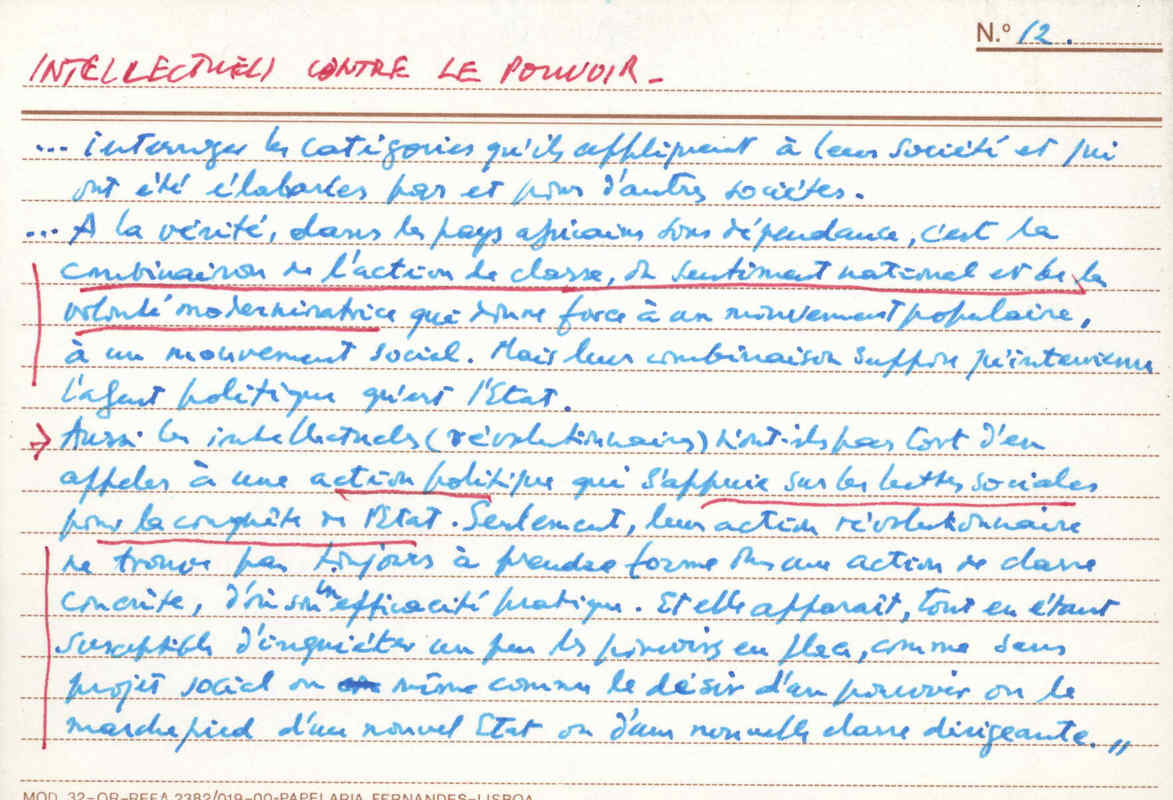 N.º 12.
INTELLECTUELS CONTRE LE POUVOIR_
... interroger les catégories qu'ils appliquent à leur société et qui
ont été élaborées par et pour d'autres sociétés.
... A la vérité, dans les pays africains sous dépendance, c'est la
combinaison de l'action de classe, du sentiment national et de la
volonté modernisatrice qui donne force à un mouvement populaire,
à un mouvement social. Mais leur combinaison suppose qu'intervienne
l'agent politique qu'est l'Etat.
→ Aussi les intellectuels (révolutionnaires) n'ont-ils pas tort d'en
appeler à une action politique qui s'appuie sur les luttes sociales
pour la conquête de l'Etat. Seulement, leur action révolutionnaire
ne trouve pas toujours à prendre forme dans une action de classe
concrète, d'où son inefficacité pratique. Et elle apparaît, tout en étant
susceptible d'inquiéter un peu les pouvoirs en place, comme sans
projet social ou même comme le désir d'un pouvoir ou le
marchepied d'un nouvel Etat ou d'une nouvelle classe dirigeante.,,
MOD. 32-OR-REFA 2382/019-00-PAPELARIA FERNANDES-LISBOA